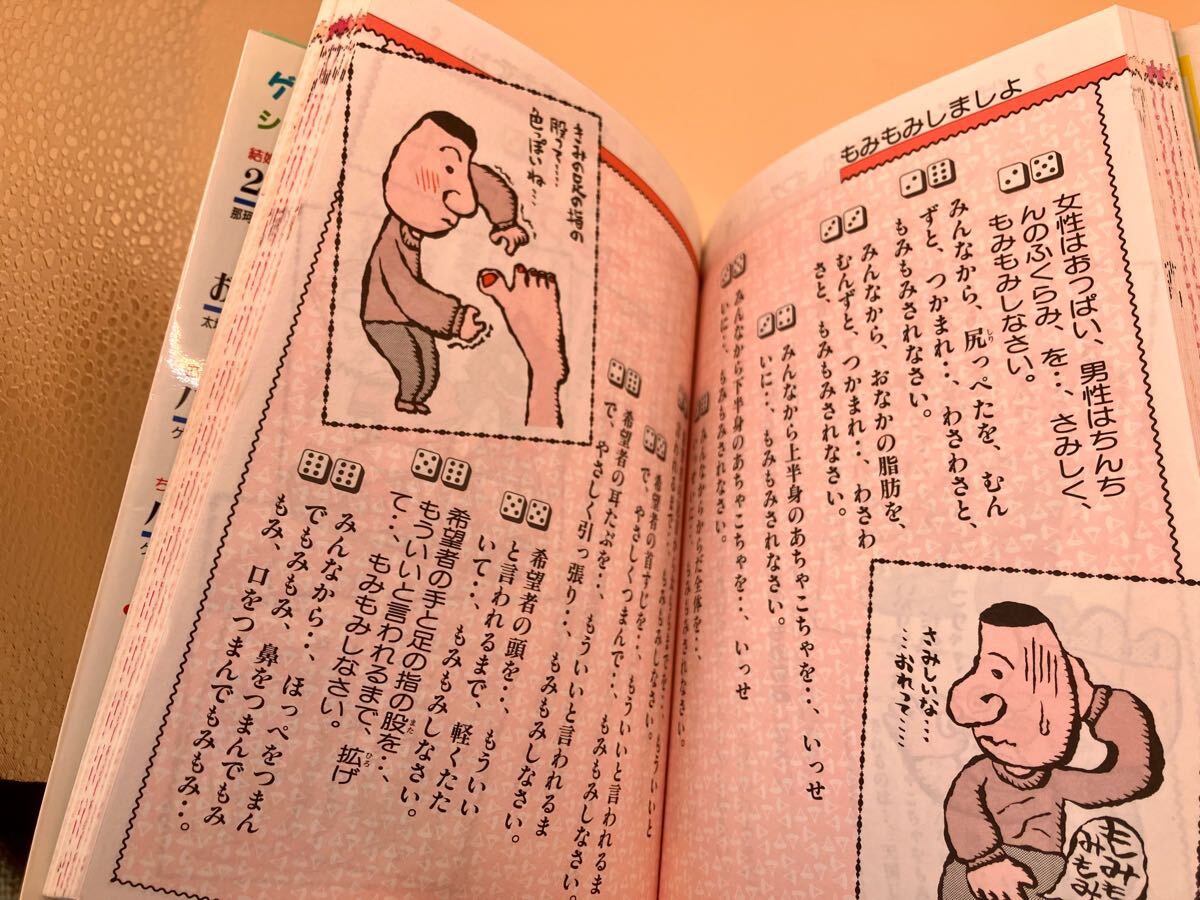 もみもみしましよ
女性はおっぱい、男性はちんち
んのふくらみ、を・・、さみしく、
もみもみしなさい。
みんなから、尻っぺたを、むん
しり
ずと、つかまれ・・、わさわさと、
もみもみされなさい。
みんなから、おなかの脂肪を、
むんずと、つかまれ・・、わさわ
さと、もみもみされなさい。
みんなから上半身のあちゃこちゃを・・、いっせ
いに・・、もみもみされなさい。
みんなから下半身のあちゃこちゃを・・、いっせ
いに・・、もみもみされなさい。
みんなからからだ全体を・・、
さみしいな・・・
・・・おれって・・・
もみも
みもみ
希望者の首すじを・・、もういいと
で、やさしくつまんで・・、もみもみしなさい。
希望者の耳たぶを・・、もういいと言われるま
で、やさしく引っ張り・・、もみもみしなさい。
希望者の頭を・・、もういい
と言われるまで、軽くたた
いて・・、もみもみしなさい。
希望者の手と足の指の股を・・、
また
もういいと言われるまで、拡げ
ひろ
て・・、もみもみしなさい。
みんなから・・、ほっぺをつまん
でもみもみ、鼻をつまんでもみ
もみ、口をつまんでもみもみ・・。
きみの足の指の
股って・・・・
色っぽいね・・・
ゲ
シ
結婚
2
那瑛
お
太